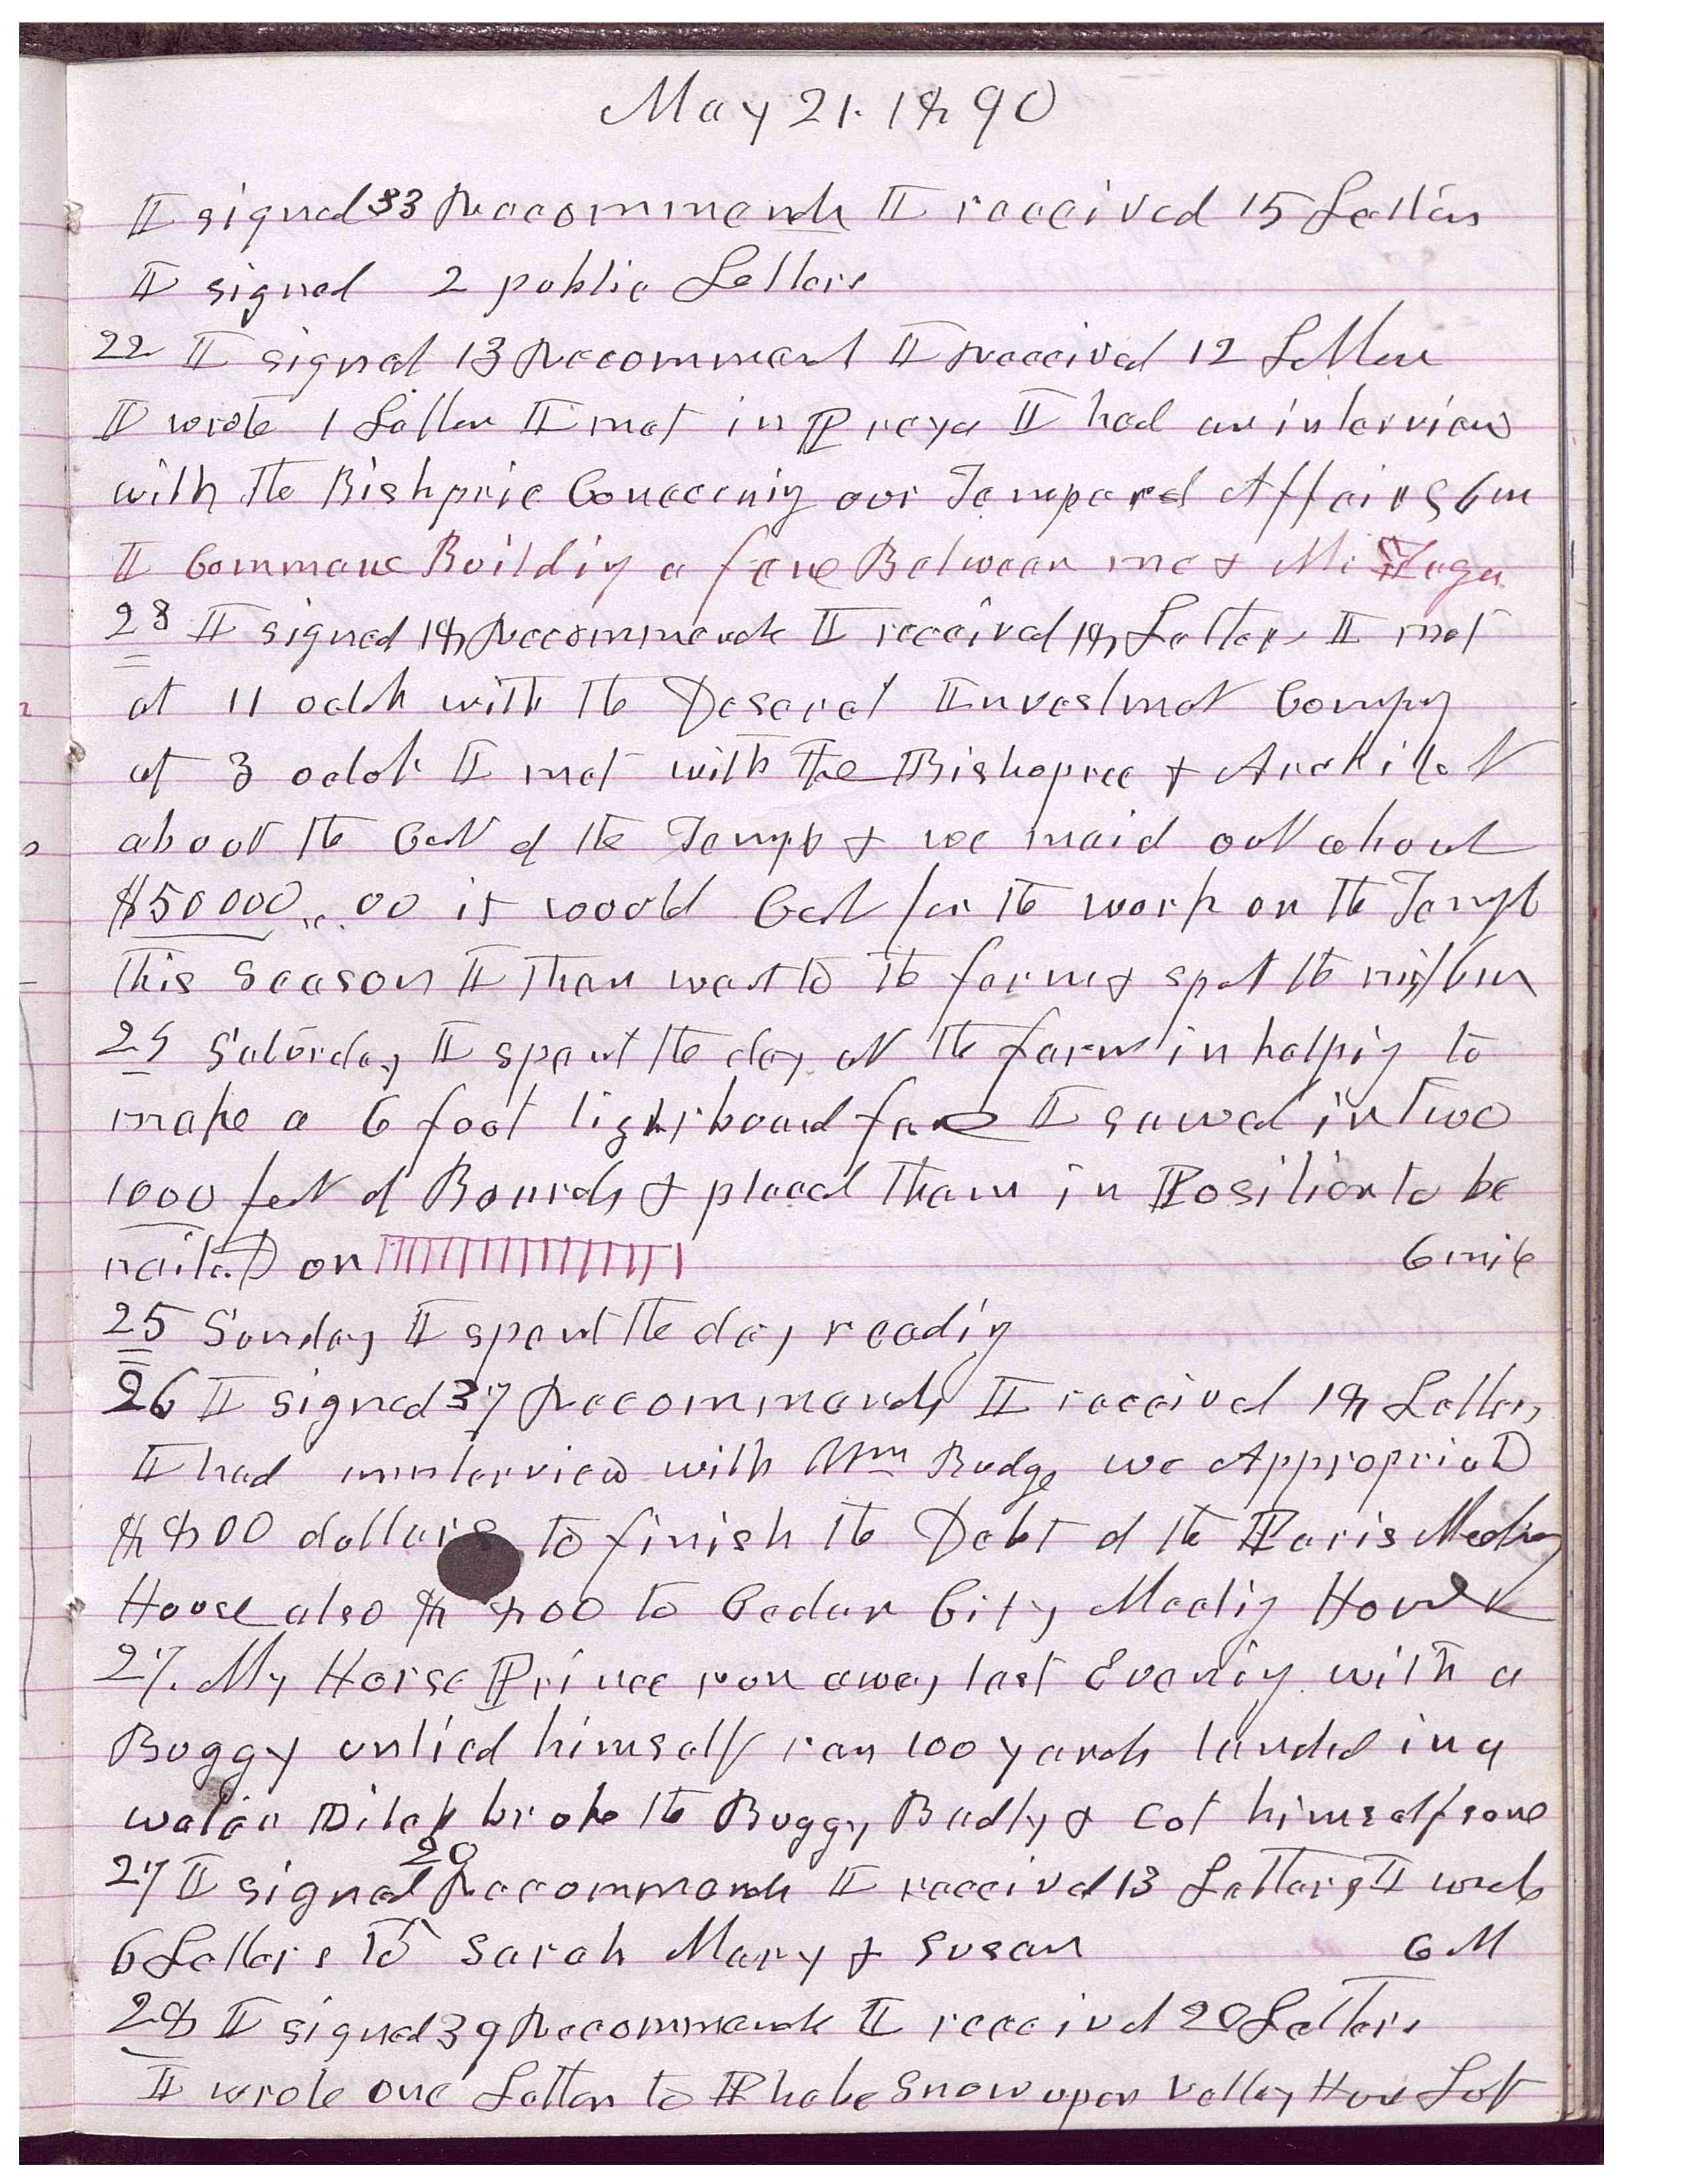 May 21. 1890
I signed 33 Recommends I received 15 Letters
I signed 2 public Letters
22 I signed 13 Recommend I received 12 Letters
I wrote 1 Letter I met in Prayer I had an interview
with the Bishpric Concerning our Temporal Affairs 6 m
I Commenc Building a fence Between me & Mr
23 I signed 18 Recommends I received 18 Letters I met
at 11 oclok with the Deseret Investmet Compny
at 3 oclok I met with the Bishopric & Architect
about the Cost of the Temple & we maid out about
$50000,.00 it would Cost for the work on the Templ
this Season I then went to the farm & spet the night 6 m
24 Saturday I spent the day at the farm in helping to
make a 6 foot tight board fence I sawed in two
1000 feet of Boards & placed them in Position to be
nailed on 6 mile
25 Sunday I spent the day reading
26 I signed 37 Recommends I received 18 Letters
I had an interview with Wm Budge we Appropriatd
$800 dollars to finish the Debt of the Paris Meeting
House also $800 to Cedar City Meeting House
27. My Horse Prince run away last Evening with a
Buggy untied himself ran 100 yards landed in a
water Ditch broke the Buggy Badly & Cut himself some
27 I signed 20 Recommends I received 13 Letters I wrote
6 Letters to Sarah Mary & Susan 6 M
28 I signed 39 Recommends I received 20 Letters
I wrote one Letter to Phebe Snow upon valley House Lot